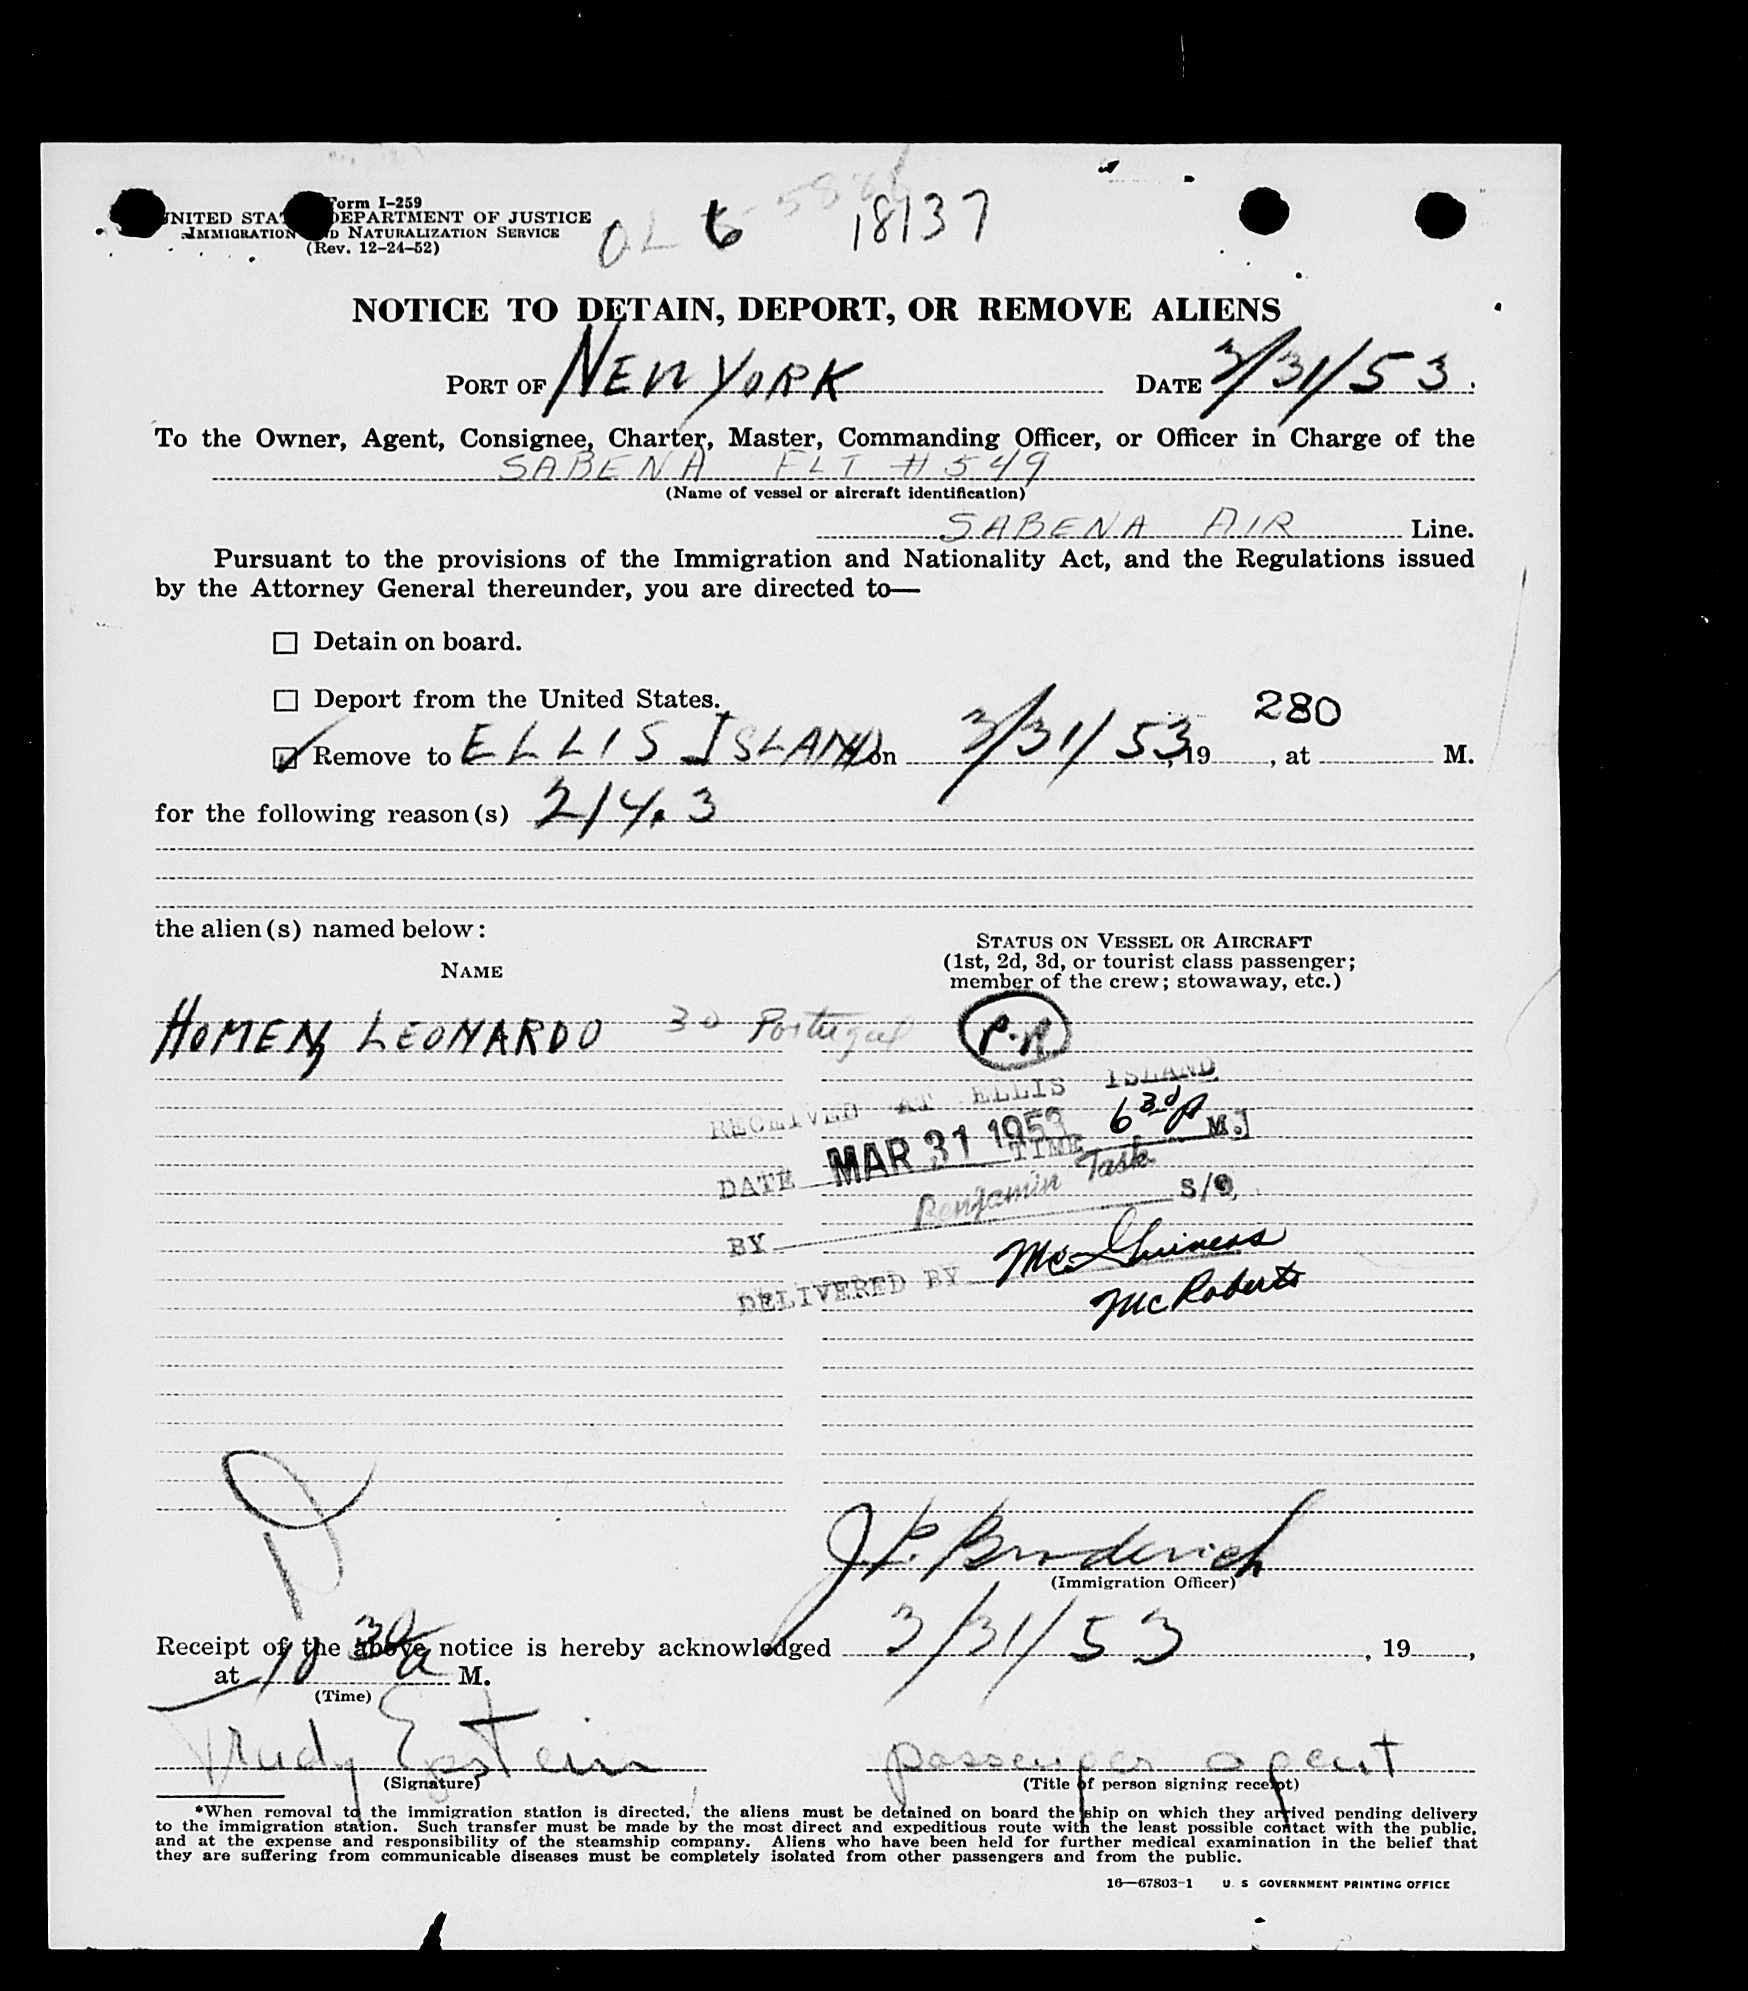 Form I-259
UNITED STATES DEPARTMENT OF JUSTICE
IMMIGRATION AND NATURALIZATION SERVICE
(Rev. 12-24-52)
OL 6 18137
NOTICE TO DETAIN, DEPORT, OR REMOVE ALIENS
PORT OF NEW YORK DATE 3/31/53.
To the Owner, Agent, Consignee, Charter, Master, Commanding Officer, or Officer in Charge of the
SABENA FLT #549
(Name of vessel or aircraft identification)
SABENA AIR Line.
Pursuant to the provisions of the Immigration and Nationality Act, and the Regulations issued
by the Attorney General thereunder, you are directed to—
☐ Detain on board.
☐ Deport from the United States.
280
☑ Remove to ELLIS ISLAND on 3/31/53, 19, at M.
for the following reason(s) 214.3
the alien(s) named below:
NAME
STATUS ON VESSEL OR AIRCRAFT
(1st, 2d, 3d, or tourist class passenger;
member of the crew; stowaway, etc.)
HOMEN, LEONARDO 30 Portugal P.R.
RECEIVED AT ELLIS ISLAND
DATE MAR 31 1953 TIME 6 30 P M.
BY Benjamin Task S/O
DELIVERED BY McGuiness
McRoberts
J.P. Broderick
(Immigration Officer)
Receipt of the above notice is hereby acknowledged 3/31/53, 19,
at 10 30 a M.
(Time)
Trudy Epstein passenger agent
(Signature) (Title of person signing receipt)
*When removal to the immigration station is directed, the aliens must be detained on board the ship on which they arrived pending delivery
to the immigration station. Such transfer must be made by the most direct and expeditious route with the least possible contact with the public,
and at the expense and responsibility of the steamship company. Aliens who have been held for further medical examination in the belief that
they are suffering from communicable diseases must be completely isolated from other passengers and from the public.
16—67803-1 U. S. GOVERNMENT PRINTING OFFICE